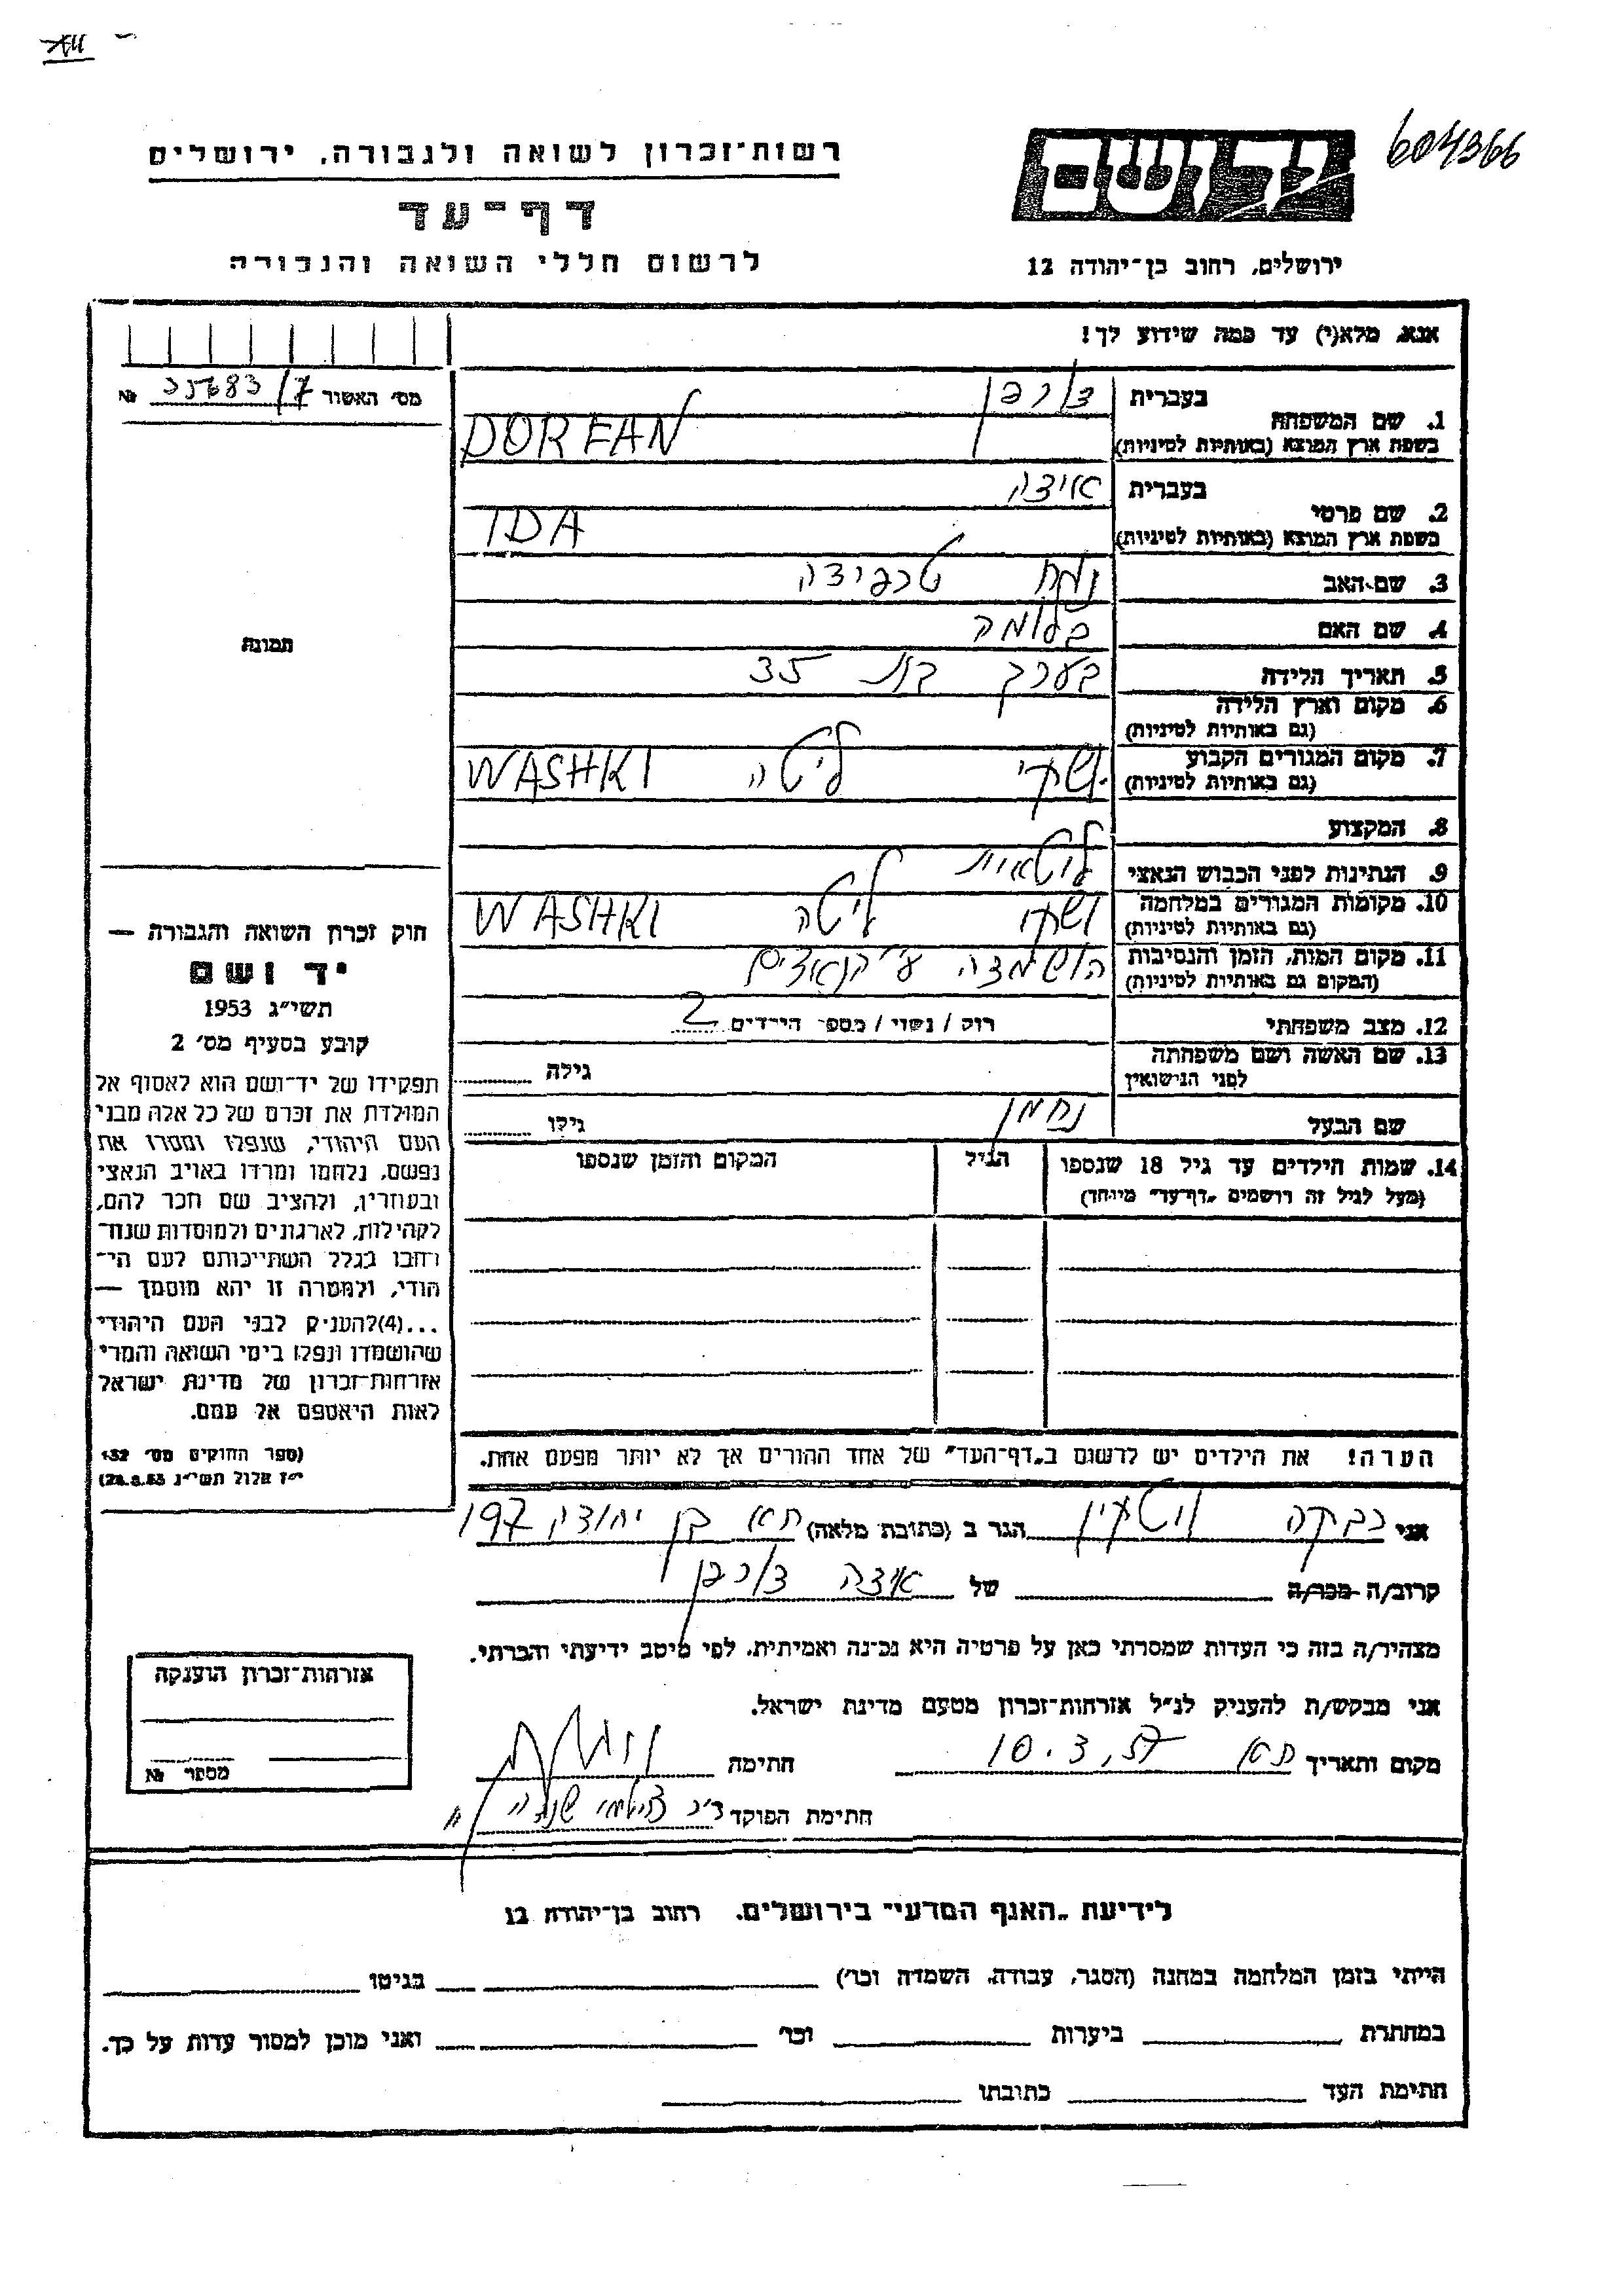 604366
יד ושם
רשות־זכרון לשואה ולגבורה, ירושלים
דף־עד
לרשום חללי השואה והגבורה
ירושלים, רחוב בן־יהודה 12
אנא, מלא(י) עד כמה שידוע לך!
מס׳ האשור 35683/7 №
1. שם המשפחה
בעברית דורפן
בשפת ארץ המוצא (באותיות לטיניות)
DORFAN
2. שם פרטי
בעברית אידה
בשפת ארץ המוצא (באותיות לטיניות)
IDA
3. שם־האב נח טרפידה
4. שם האם בלומה
5. תאריך הלידה בערך בת 35
6. מקום וארץ הלידה
(גם באותיות לטיניות)
7. מקום המגורים הקבוע ושקי ליטה WASHKI
(גם באותיות לטיניות)
8. המקצוע
9. הנתינות לפני הכבוש הנאצי ליטאית
10. מקומות המגורים במלחמה ושקי ליטה WASHKI
(גם באותיות לטיניות)
11. מקום המות, הזמן והנסיבות הושמדה ע״י הנאצים
(המקום גם באותיות לטיניות)
12. מצב משפחתי רוק / נשוי / מספר הילדים 2
13. שם האשה ושם משפחתה
לפני הנישואין
גילה
שם הבעל נחמן גילו
14. שמות הילדים עד גיל 18 שנספו
(מעל לגיל זה רושמים „דף־עד״ מיוחד)
הגיל
המקום והזמן שנספו
הערה! את הילדים יש לרשום ב„דף־העד״ של אחד ההורים אך לא יותר מפעם אחת.
תמונה
חוק זכרון השואה והגבורה —
יד ושם
תשי״ג 1953
קובע בסעיף מס׳ 2
תפקידו של יד־ושם הוא לאסוף אל
המולדת את זכרם של כל אלה מבני
העם היהודי, שנפלו ומסרו את
נפשם, נלחמו ומרדו באויב הנאצי
ובעוזריו, ולהציב שם וזכר להם,
לקהילות, לארגונים ולמוסדות שנח־
רחבו בגלל השתייכותם לעם הי־
הודי, ולמטרה זו יהא מוסמך —
...(4) להעניק לבני העם היהודי
שהושמדו ונפלו בימי השואה והמרי
אזרחות־זכרון של מדינת ישראל
לאות היאספם אל עמם.
(ספר החוקים מס׳ 132
י״ז אלול תשי״ג 28.8.53)
אני רבקה ויטקין הגר ב (כתובת מלאה) תא בן יהודה 197
קרוב/ה מכר/ה של אידה דורפן
מצהיר/ה בזה כי העדות שמסרתי כאן על פרטיה היא נכונה ואמיתית, לפי מיטב ידיעתי והכרתי.
אני מבקש/ת להעניק לנ״ל אזרחות־זכרון מטעם מדינת ישראל.
מקום ותאריך תא 10.3.57 חתימה
חתימת הפוקד
אזרחות־זכרון הוענקה
מספר №
לידיעת „האגף המדעי״ בירושלים, רחוב בן־יהודה 12
הייתי בזמן המלחמה במחנה (הסגר, עבודה, השמדה וכו׳) בגיטו
במחתרת ביערות וכו׳ ואני מוכן למסור עדות על כך.
חתימת העד כתובתו